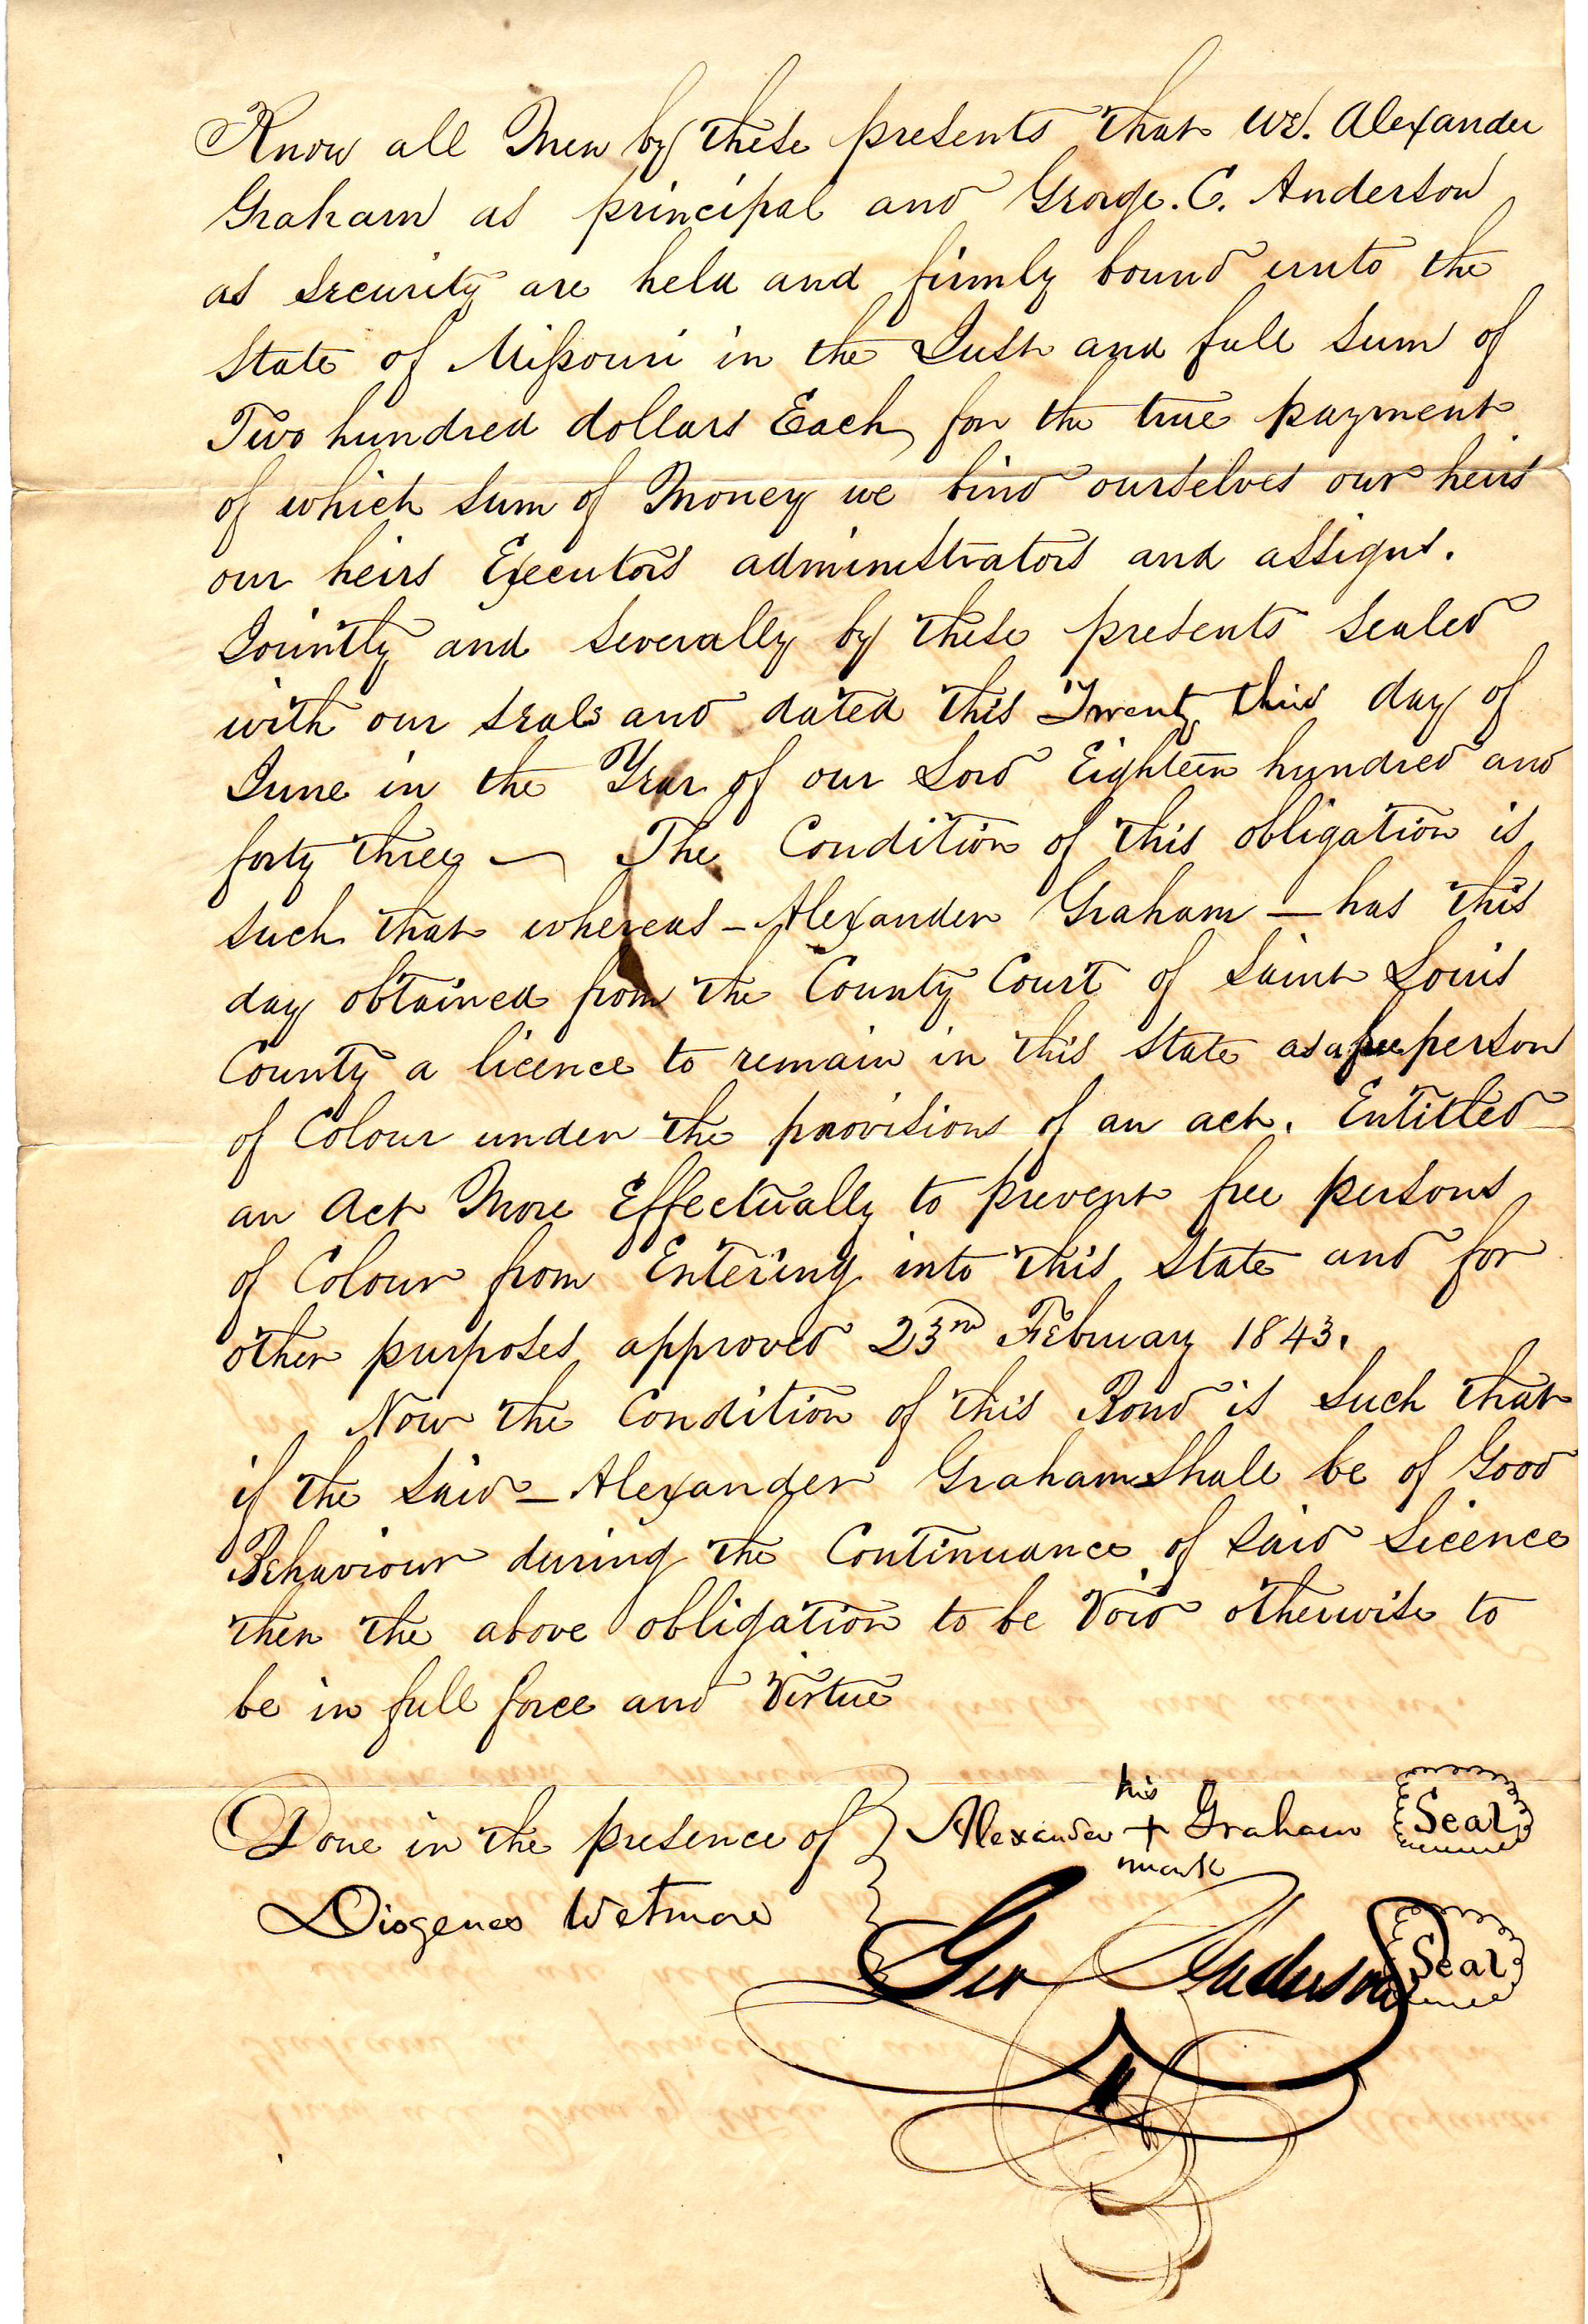 Know all Men by these presents that We. Alexander
Graham as principal and George. C. Anderson
as security are held and firmly bound unto the
State of Missouri in the Just and full sum of
Two hundred dollars Each for the true payment
of which sum of Money we bind ourselves our heirs
our heirs Executors administrators and assigns.
Jointly and severally by these presents sealed
with our seals and dated this Twenty third day of
June in the Year of our Lord Eighteen hundred and
forty three — The Condition of this obligation is
such that whereas – Alexander Graham — has this
day obtained from the County Court of Saint Louis
County a licence to remain in this State as a free person
of Colour under the provisions of an act. Entitled
an Act More Effectually to prevent free persons
of Colour from Entering into this State and for
other purposes approved 23rd February 1843.
Now the Condition of this Bond is such that
if the said – Alexander Graham Shall be of Good
Behaviour during the Continuance of said Licence
then the above obligation to be Void otherwise to
be in full force and Virtue
Done in the presence of } Alexander his + mark Graham Seal
Diogenes Wetmore
Geo Anderson Seal